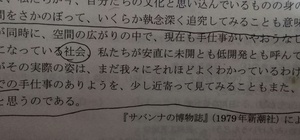 が今、自分たちの文化と思い込んでいるものの身の
間をさかのぼって、いくらか執念深く追究してみることも意味
が同時に、空間の広がりの中で、現在も手仕事がいやおうなく
になっている社会、私たちが安直に未開とも低開発とも呼んで
がその実際の姿は、まだ我々にそれほどよくわかっているわけ
での手仕事のありようを、少し近寄って見てみることもまた、
と思うのである。
『サバンナの博物誌』(1979年新潮社)によ